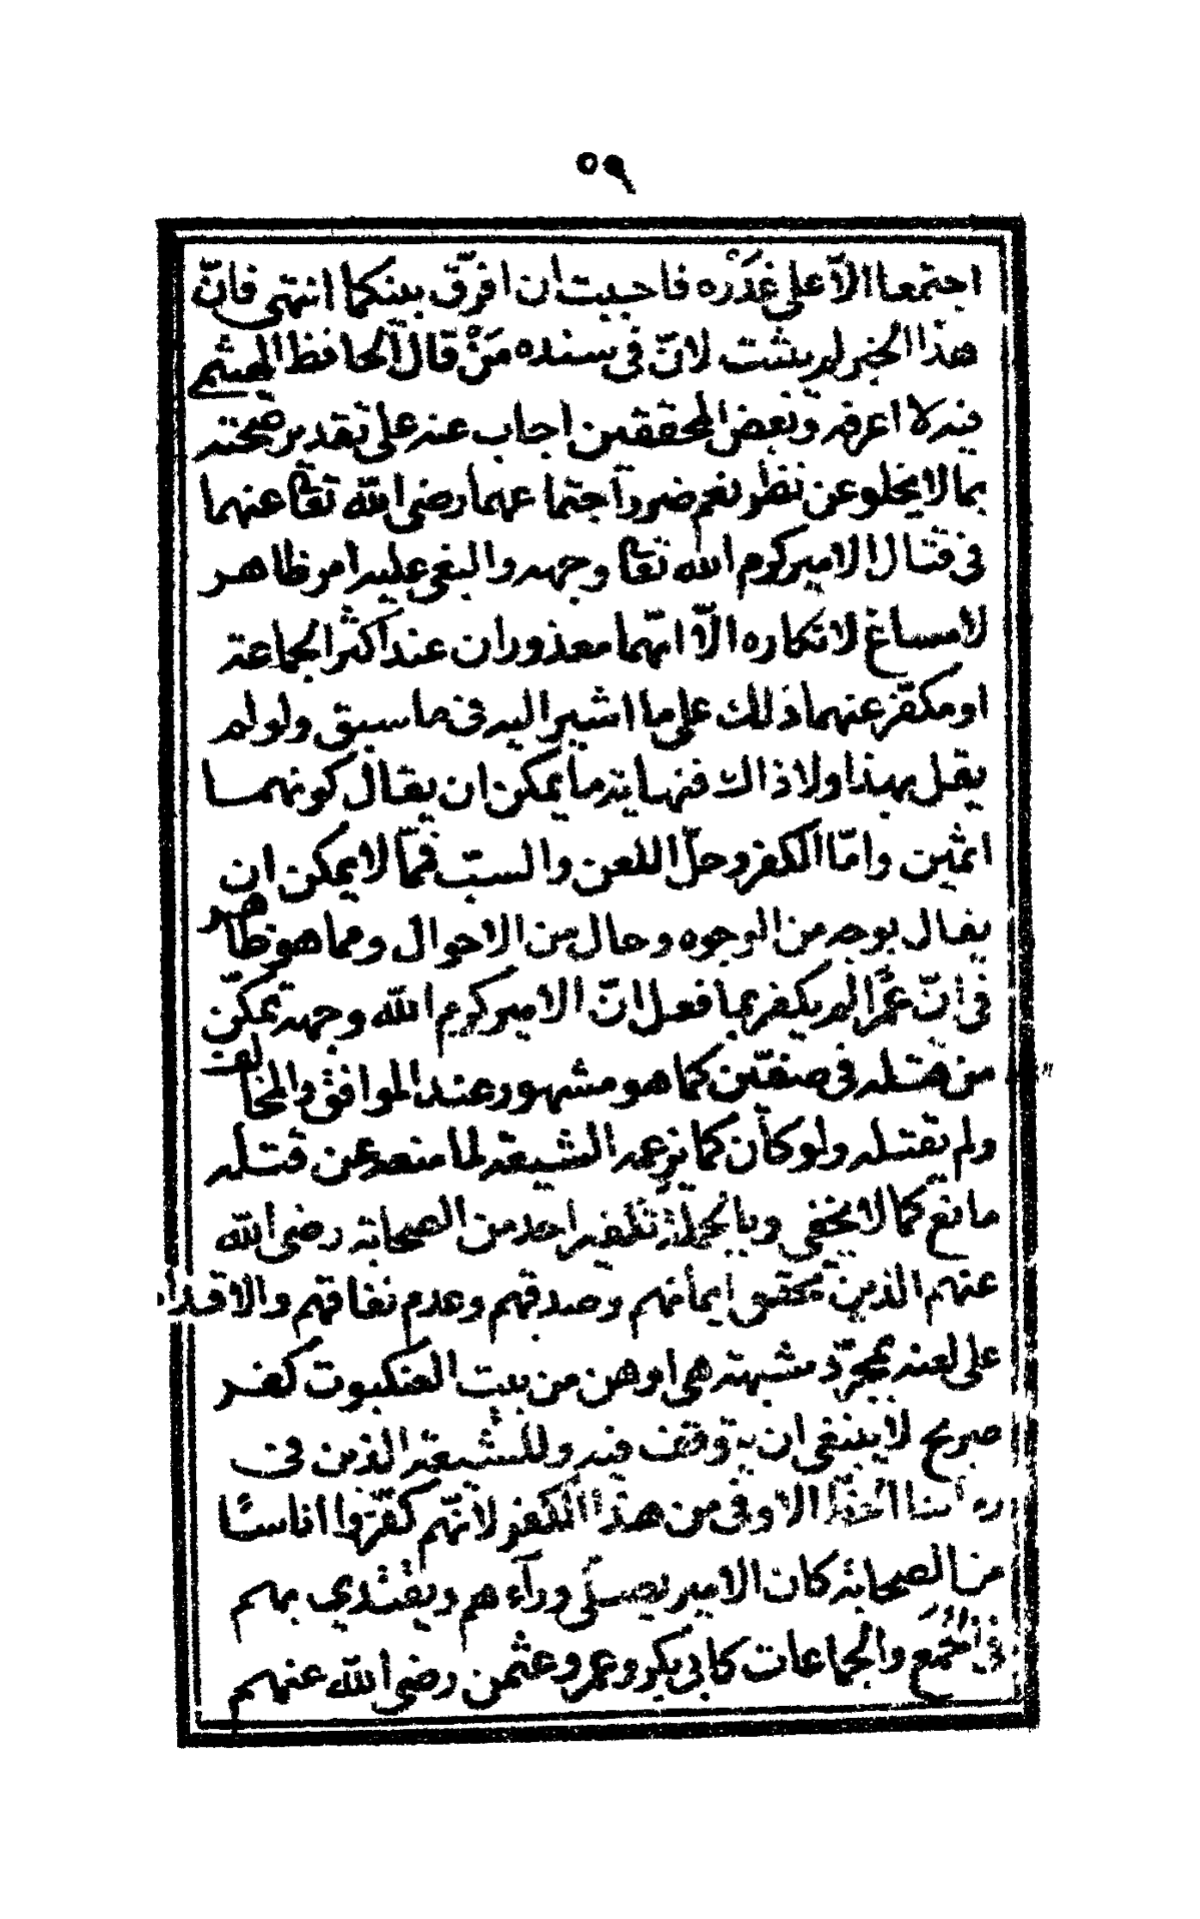 ٥٩
اجتمعا الّا على غَدْرة فاحببت ان افرّق بينكما انتهى فانّ
هذا الخبر لم يثبت لانّ فى سنده مَنْ قال الحافظ الهيثمى
فيه لا اعرفه وبعض المحققين اجاب عنه على تقدير صحته
بما لا يخلو عن نظر نعم ضرر اجتماعهما رضى الله تعالى عنهما
فى قتال الامير كرم الله تعالى وجهه والبغى عليه امر ظاهر
لامساغ لانكاره الّا انّهما معذوران عند اكثر الجماعة
او مكفّر عنهما ذلك على ما اشير اليه فى ما سبق ولو لم
يقل بهذا ولا ذاك فنهاية ما يمكن ان يقال كونهما
اثمين وامّا الكفر وحلّ اللعن والسبّ فممّا لا يمكن ان
يقال بوجه من الوجوه وحال من الاحوال ومما هو ظاهر
فى انّ عَمْرًا لم يكفر بما فعل انّ الامير كرم الله وجهه تمكّن
من قتله فى صفّين كما هو مشهور عند الموافق والمخالف
ولم يقتله ولو كان كما يزعمه الشيعة لما منعه عن قتله
مانع كما لا يخفى وبالجملة تكفير احد من الصحابة رضى الله
عنهم الذين تحقق ايمانهم وصدقهم وعدم نفاقهم والاقدام
على لعنه بمجرّد شبهة هى اوهن من بيت العنكبوت كفر
صريح لا ينبغى ان يتوقف فيه وللشيعة الذين فى
ديارنا الحظّ الاوفى من هذا الكفر لانّهم كفّروا اناسًا
من الصحابة كان الامير يصلّى ورآءهم ويقتدي بهم
فى الجُمَع والجماعات كابى بكر وعمر وعثمن رضى الله عنهم